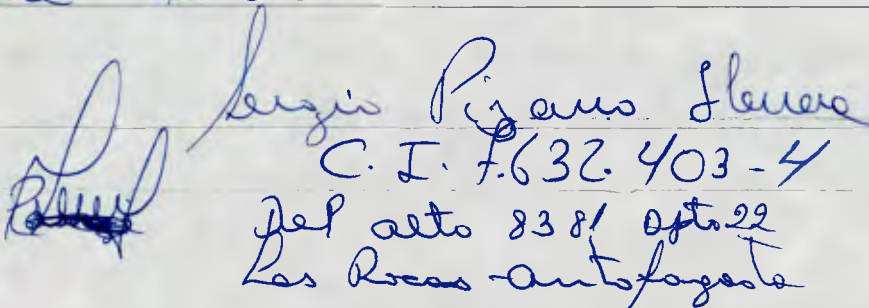 Sergio Pizarro Herrera
C. I. 7.632.403-4
Del alto 8381 Dpto. 22
Las Rocas - Antofagasta